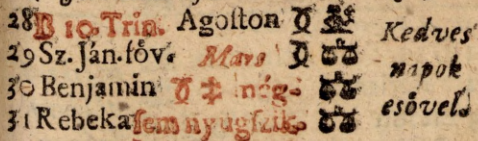 28 B 10. Trin. Agoston Kedves
29 Sz. Ján. föv. Mars napok
30 Benjamin még- esövel.
31 Rebeka sem nyugszik.